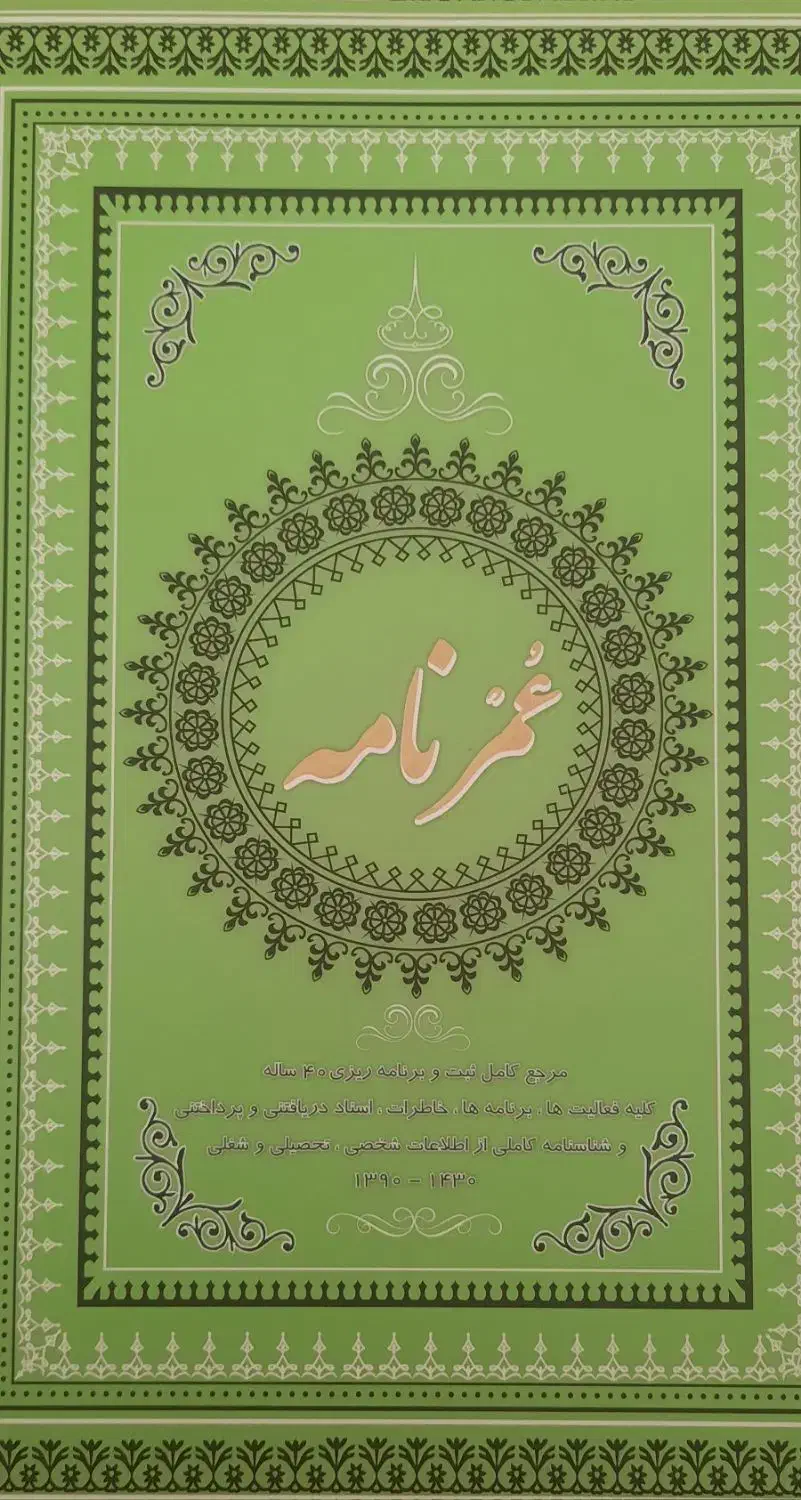 عُمْر نامه
مرجع کامل ثبت و برنامه ریزی ۴۰ ساله
کلیه فعالیت ها ، برنامه ها ، خاطرات ، اسناد دریافتنی و پرداختنی
و شناسنامه کاملی از اطلاعات شخصی ، تحصیلی و شغلی
۱۳۹۰ – ۱۴۳۰